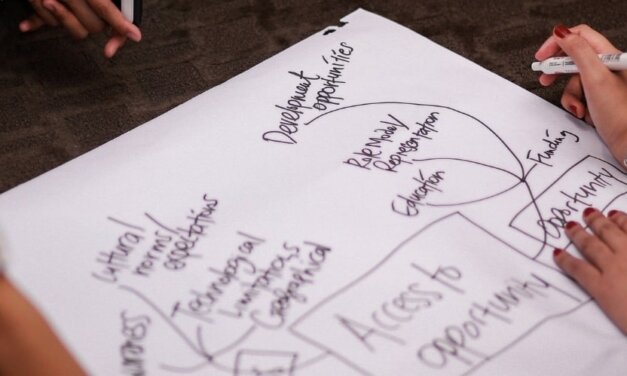 Development
opportunities
Role Model/
Representation
Education
Funding
opportunity
Cultural
norms/
expectations
Technological
Limitations
Geographical
Access to
opportunity